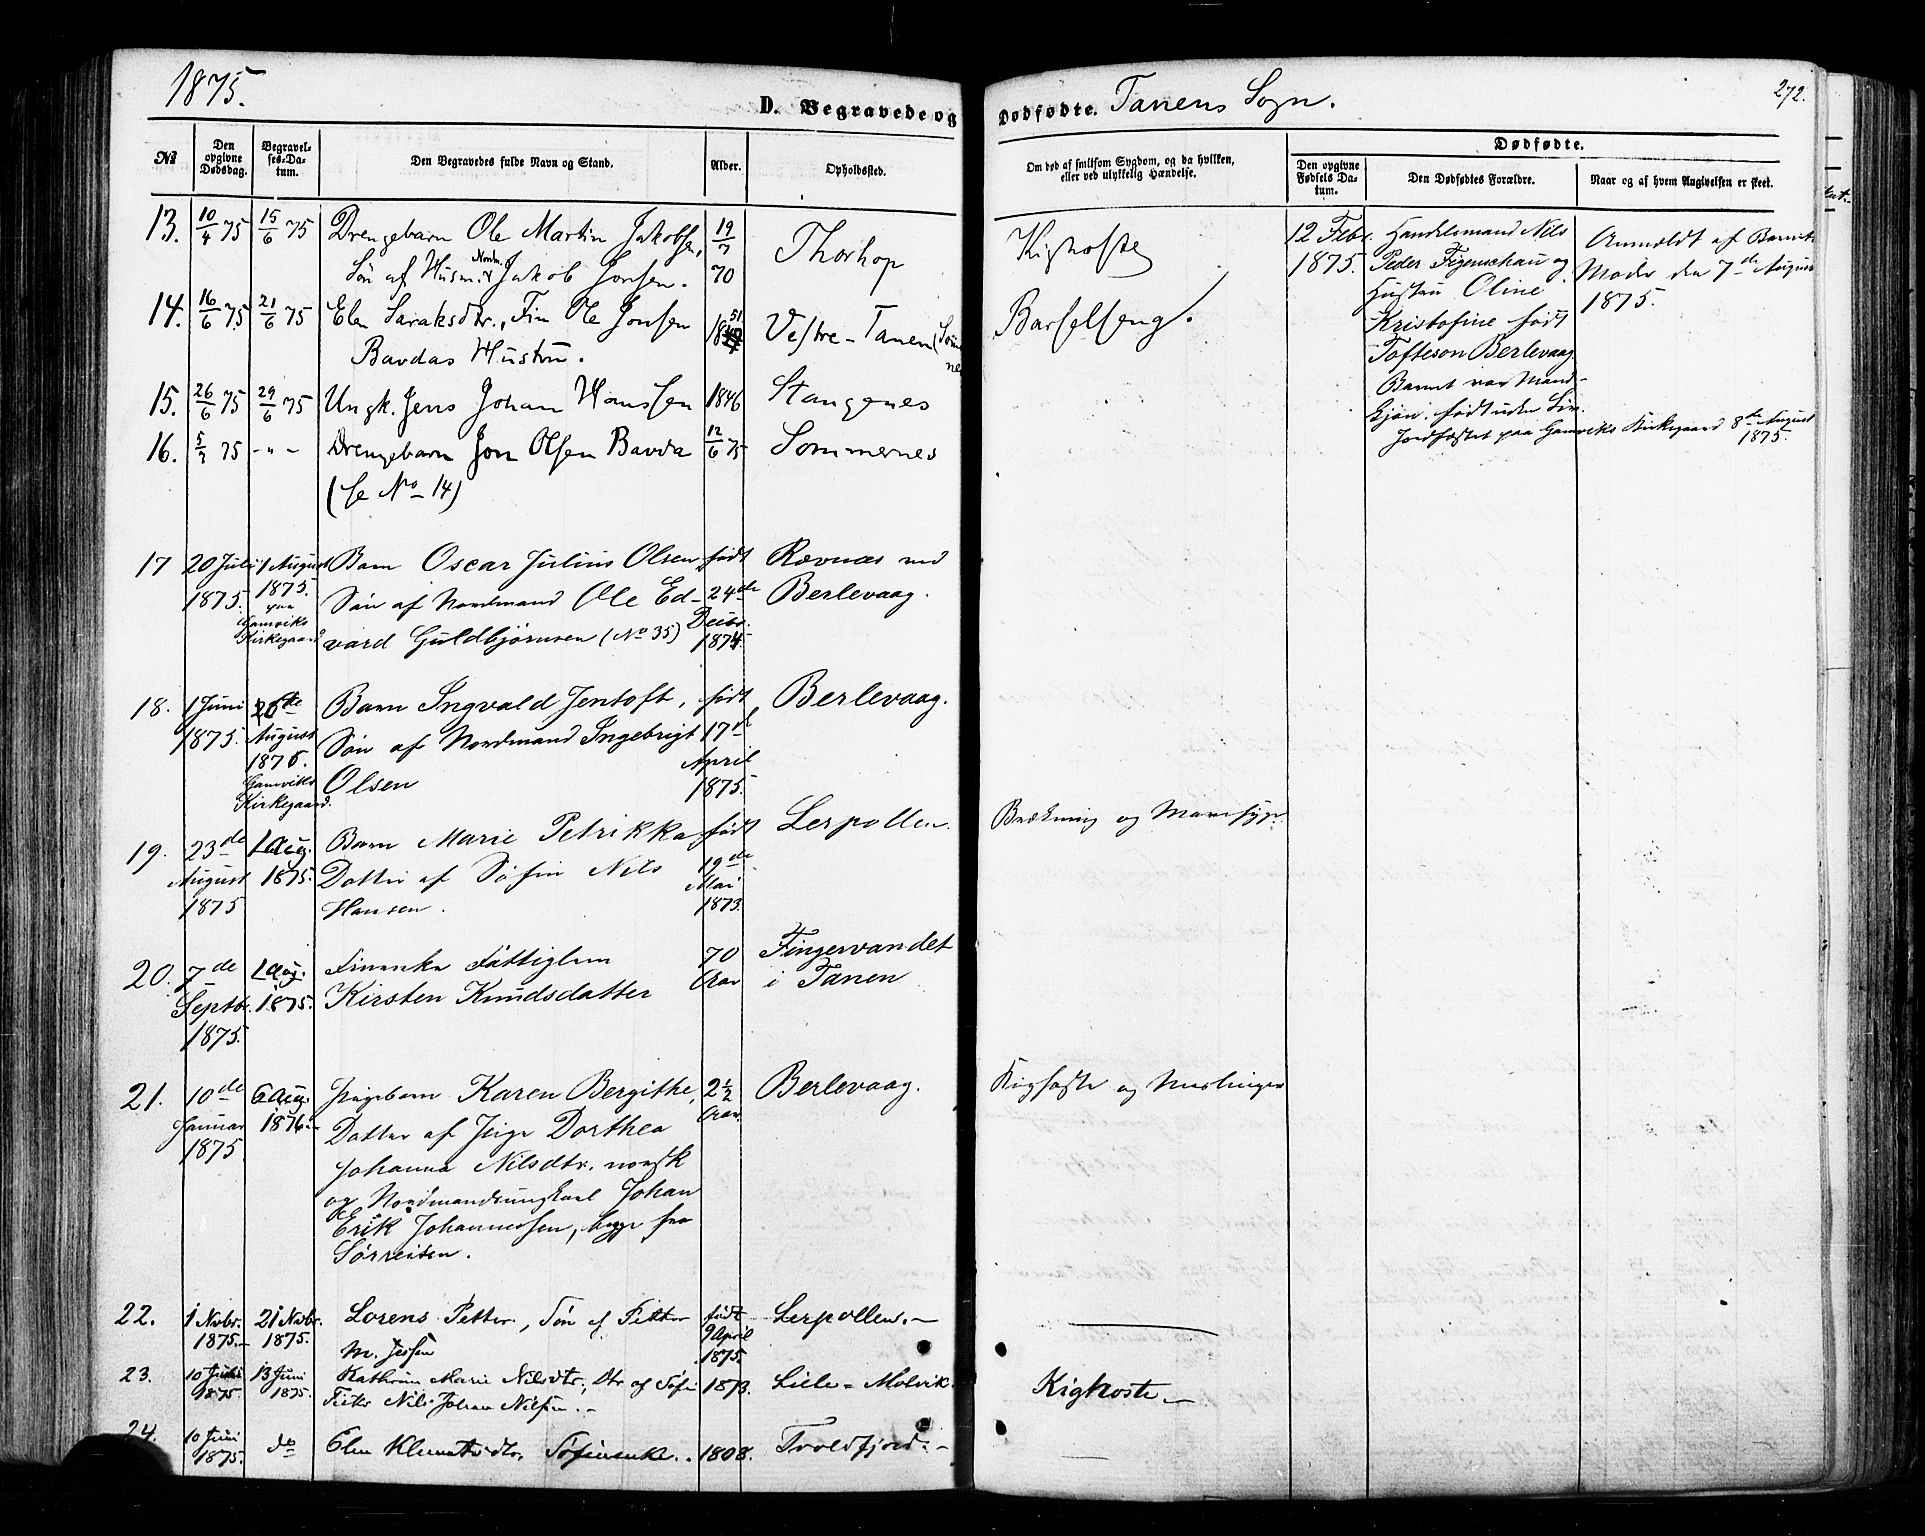 1875.
D. Begravede og
Dødfødte. Tanens Sogn.
272.
No
Den opgivne Dødsdag.
Begravelses-Datum.
Den Begravedes fulde Navn og Stand.
Alder.
Opholdssted.
Om død af smitsom Sygdom, og da hvilken,
eller ved ulykkelig Hændelse.
Dødfødte.
Den opgivne Fødsels Datum.
Den Dødfødtes Forældre.
Naar og af hvem Angivelsen er skeet.
13. 10/4 75 15/6 75 Drengebarn Ole Martin Jakobsen, 19/7 70 Thorhop Kighoste
Søn af Husm. & Nordm. Jakob Jonsen.
14. 16/6 75 21/6 75 Elen Saraksdtr., Fin Ole Jonsen 1851 Vestre-Tanen Barselseng.
Bavdas Hustru.
15. 26/6 75 29/6 75 Ungk. Jens Johan Hanssen 1846 Stangenes
16. 5/7 75 - " - Drengebarn Jon Olsen Bavda 12/6 75 Sommernes
(se No 14)
12 Febr. 1875.
Handelsmand Nils
Peder Figenschau og
Hustru Oline
Kristofine født
Tofteson Berlevaag
Barnet var Mand-
kjøn, født uden Liv.
Jordfæstet paa Gamviks Kirkegaard 8de August
1875.
Anmeldt af Barnets
Moder den 7de August
1875.
17 20 Juli 1 August Barn Oscar Julius Olsen, født Rævnæs ved
1875. 1875. Søn af Nordmand Ole Ed- 24de Berlevaag.
paa Gamviks Kirkegaard vard Guldbjørnsen (No 35) Decbr. 1874.
18. 1 Juni 26de Barn Ingvald Jentoft, født Berlevaag.
1875. August Søn af Nordmand Ingebrigt 17de
1875. Olsen April
Gamviks
Kirkegaard. 1875.
19. 23de 1 Aug. Barn Marie Petrikka født Lerpollen. Brækning og Mavesyge
August 1875. Datter af Søfin Nils 19de Mai
1875 Hansen. 1873.
20. 7de 1 Aug. Finenke Fattiglem 70 Fingervandet
Septbr. 1875. Kirsten Knudsdatter Aar i Tanen
1875.
21. 10de 6 Aug. Pigebarn Karen Bergithe, 2 1/2 Berlevaag. Kighoste og Meslinger
Januar 1876. Datter af Pige Dorthea Aar
1875 Johanna Nilsdtr. norsk
og Nordmandsungkarl Johan
Erik Johannessen, begge fra
Sørreisen.
22. 1 Novbr. 21 Novbr. Lorens Petter, Søn af Petter født Lerpollen.-
1875. 1875. M. Jessen 9 April
1875.
23. 10 Juni 13 Juni Kathrine Marie Nilsdtr., Dtr af Søfin 1873. Lille-Molvik. Kighoste.-
1875. 1875. Fisker Nils Johan Nilsen.-
24. 10 Juni do Elen Klemetsdtr. Søfinenke. 1808. Troldfjord.-
1875.